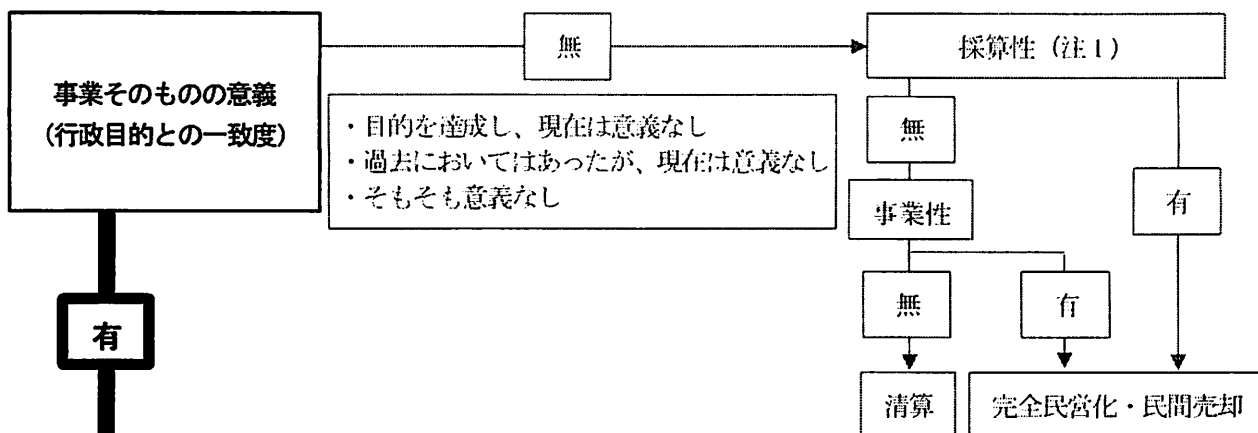 事業そのものの意義
(行政目的との一致度)
無
・目的を達成し、現在は意義なし
・過去においてはあったが、現在は意義なし
・そもそも意義なし
採算性（注１）
無
有
事業性
無
有
清算
完全民営化・民間売却
有